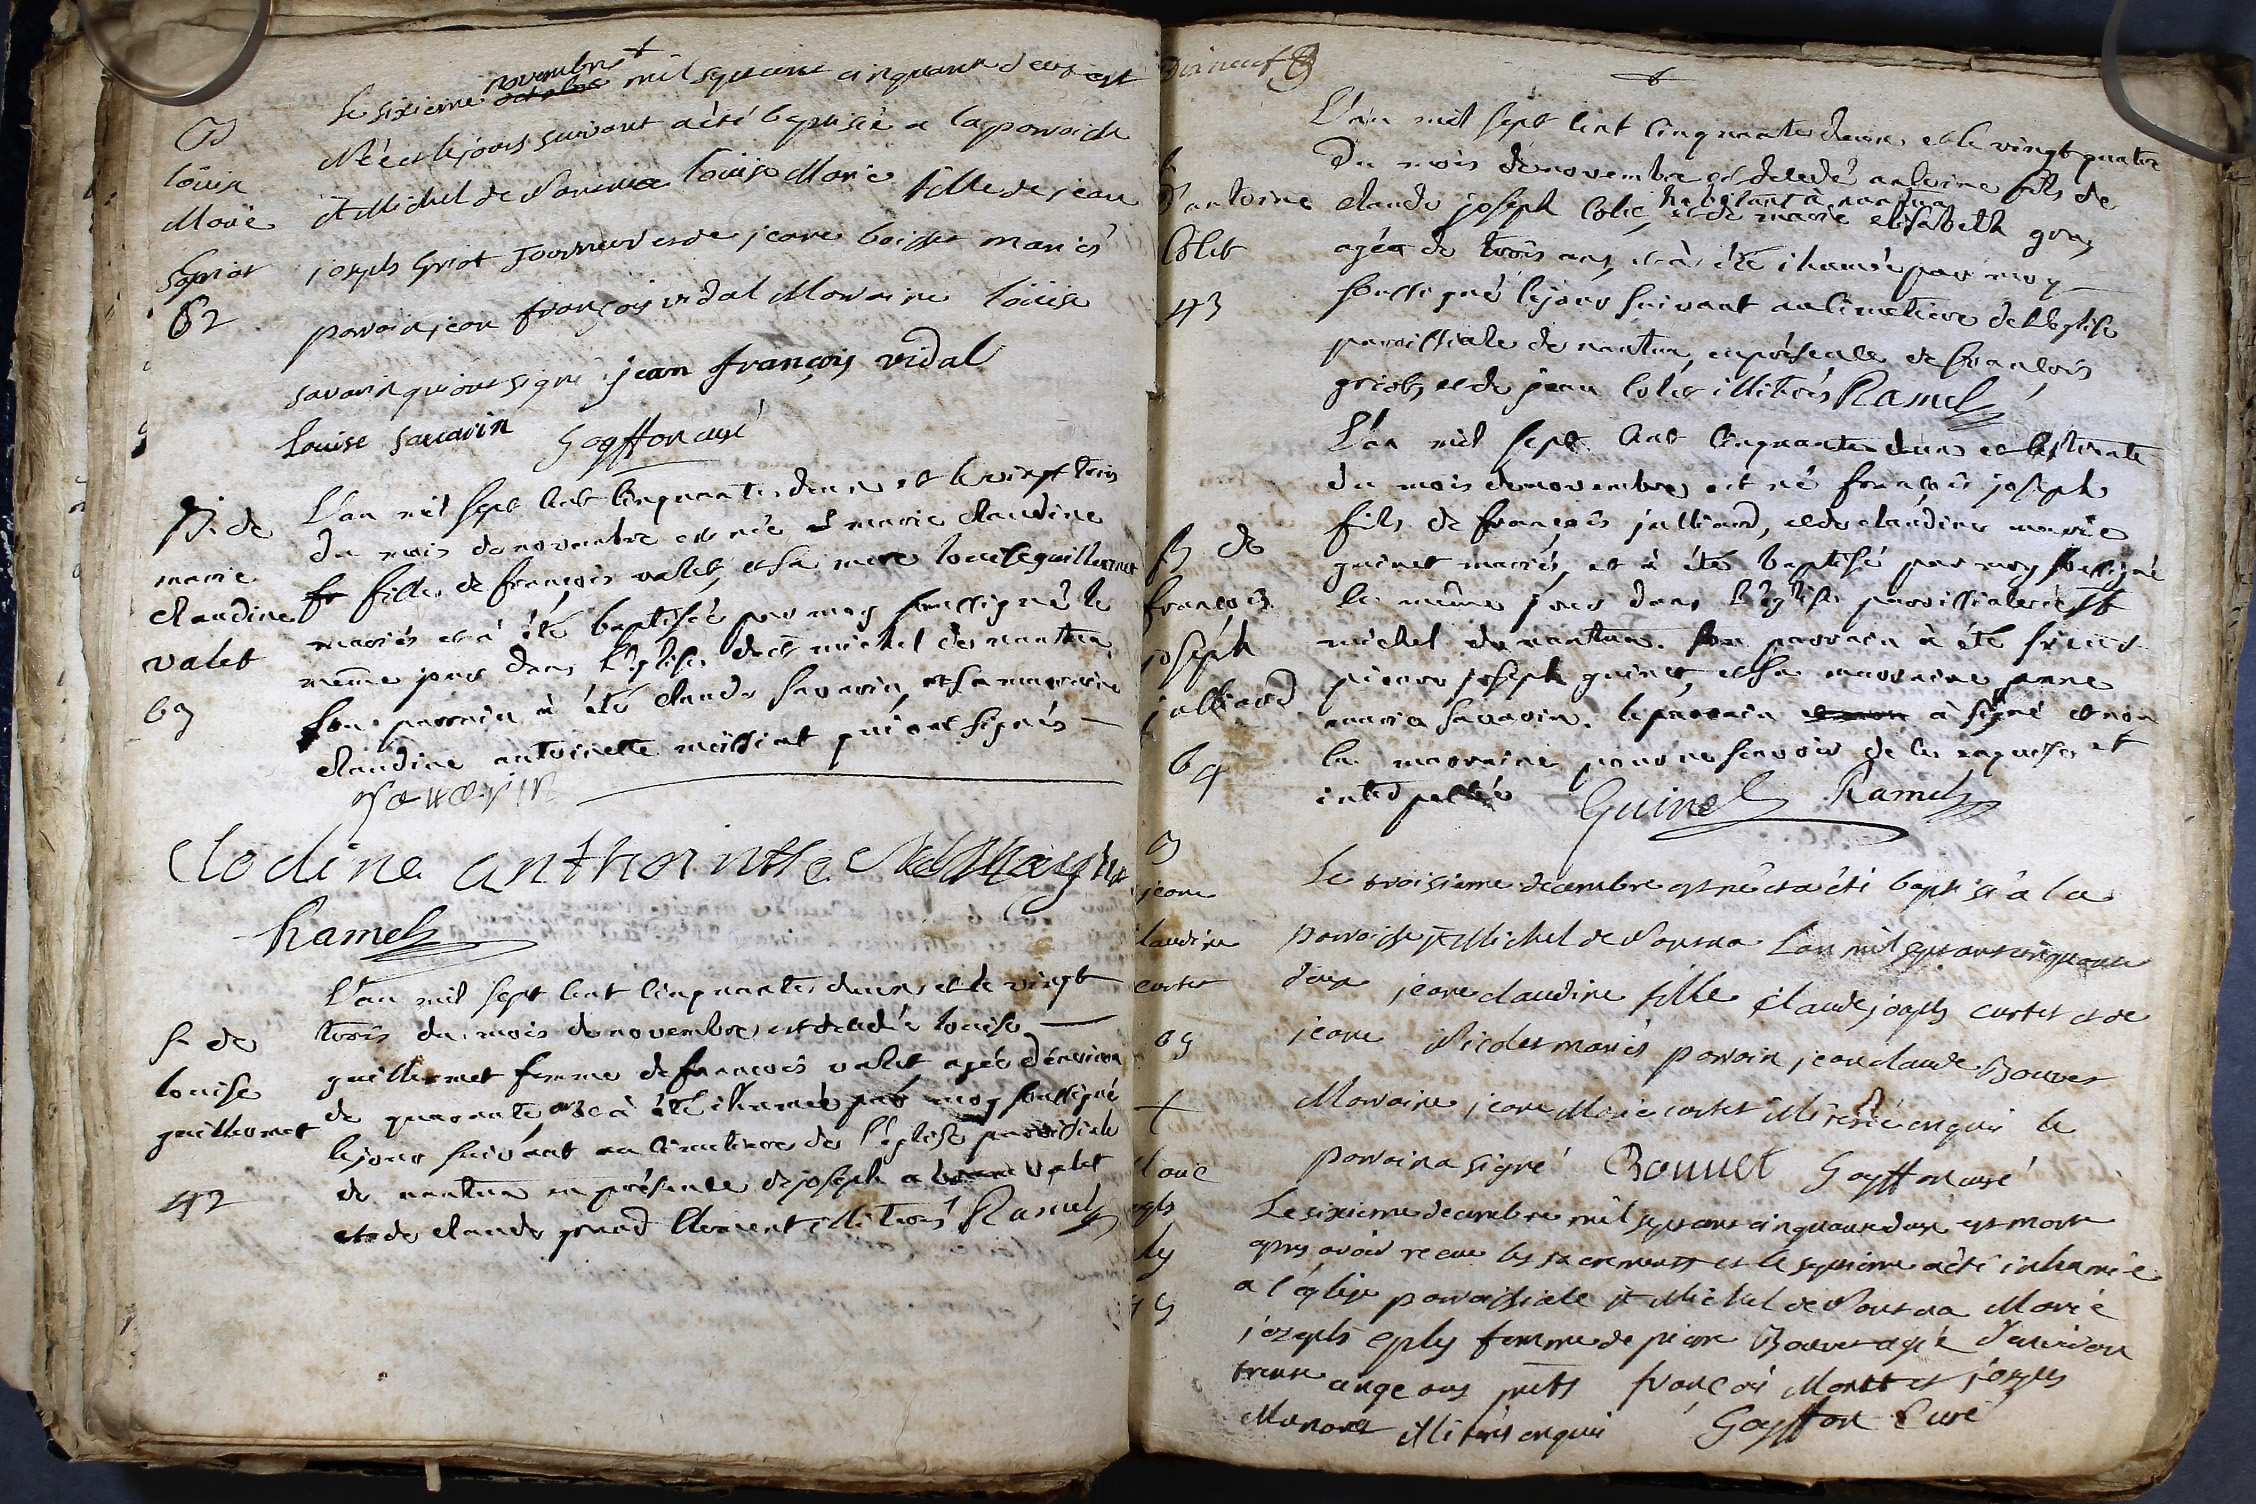 novembre
Le sixieme octobre mil sept cent cinquante deux est
Née et le jour suivant a été baptisée a la paroisse
St Michel de Nantua Loüise Marie fille de jean
joseph Griot Tourneur et de jeane boisset mariés
parain jean françois vidal Maraine Loüise
savarin qui ont signé jean françois vidal
Louise savarin Goyffon curé
B
Loüise
Marie
Griot
62
L'an mil sept cent cinquante deux et le vingt trois
du mois de novembre est née marie claudine
fr fille de françois valet, et sa mere louise guillermet
mariés et à été baptisée par moy soussigné le
même jour dans l'Eglise de st michel de nantua
son parrain à été claude savarin, et sa marraine
claudine antoinette maissiat qui ont signés
B. de
marie
claudine
valet
63
savarin
Clodine anthoinette
Ramel
L'an mil sept cent cinquante deux et le vingt
trois du mois de novembre est decedée louise
guillermet femme de françois valet agée d'environ
de quarante ans et à été inhumée par moy soussigné
le jour suivant au cimetiere de l'église paroissiale
de nantua en présence de joseph a valet
et de claude jouand Clement illiterés Ramel
S. de
louise
guillermet
42
Dixneuf
L'an mil sept cent cinquante deux et le vingt quatre
du mois de novembre est decedé antoine fils de
habitant à nantua
claude joseph Colet, et de marie elisabeth gras
agéa de trois ans, et à été inhumé par moy
soussigné le jour suivant au cimetiere de l'Eglise
paroissiale de nantua, en présence de françois
griot, et de jean Colet illiterés Ramel
S
d'antoine
Colet
43
L'an mil sept cent cinquante deux et le trente
du mois de novembre est né françois joseph
fils de françois julliard, et de claudine marie
guinet mariés, et à été baptisé par moy soussigné
le même jour dans l'Eglise paroissiale de st
michel de nantua. son parrain à été
pierre joseph guinet, et sa marraine jeane
marie savarin. le parrain à signé et non
la marraine pour ne sçavoir de ce requise et
interpellée Guinet Ramel
B de
françois
joseph
julliard
64
Le troisieme decembre est né et a été baptisé a la
paroisse St Michel de Nantua L'an mil sept cent cinquante
deux jeane claudine fille claude joseph curtet et de
jeane Nicolet mariés parain jean claude Bouvet
Maraine jeane Marie curtet illiterée enquis le
parain a signé Bouvet Goyffon curé
B
jeane
claudine
curtet
65
Le sixieme decembre mil sept cent cinquante deux est morte
apres avoir receu les sacrements et le septieme a été inhumée
a l'église paroissiale St Michel de Nantua Marie
joseph eply femme de pierre Bouvet agée d'environ
trente cinq ans prests françois Monet et joseph
illiterés enquis Goyffon Curé